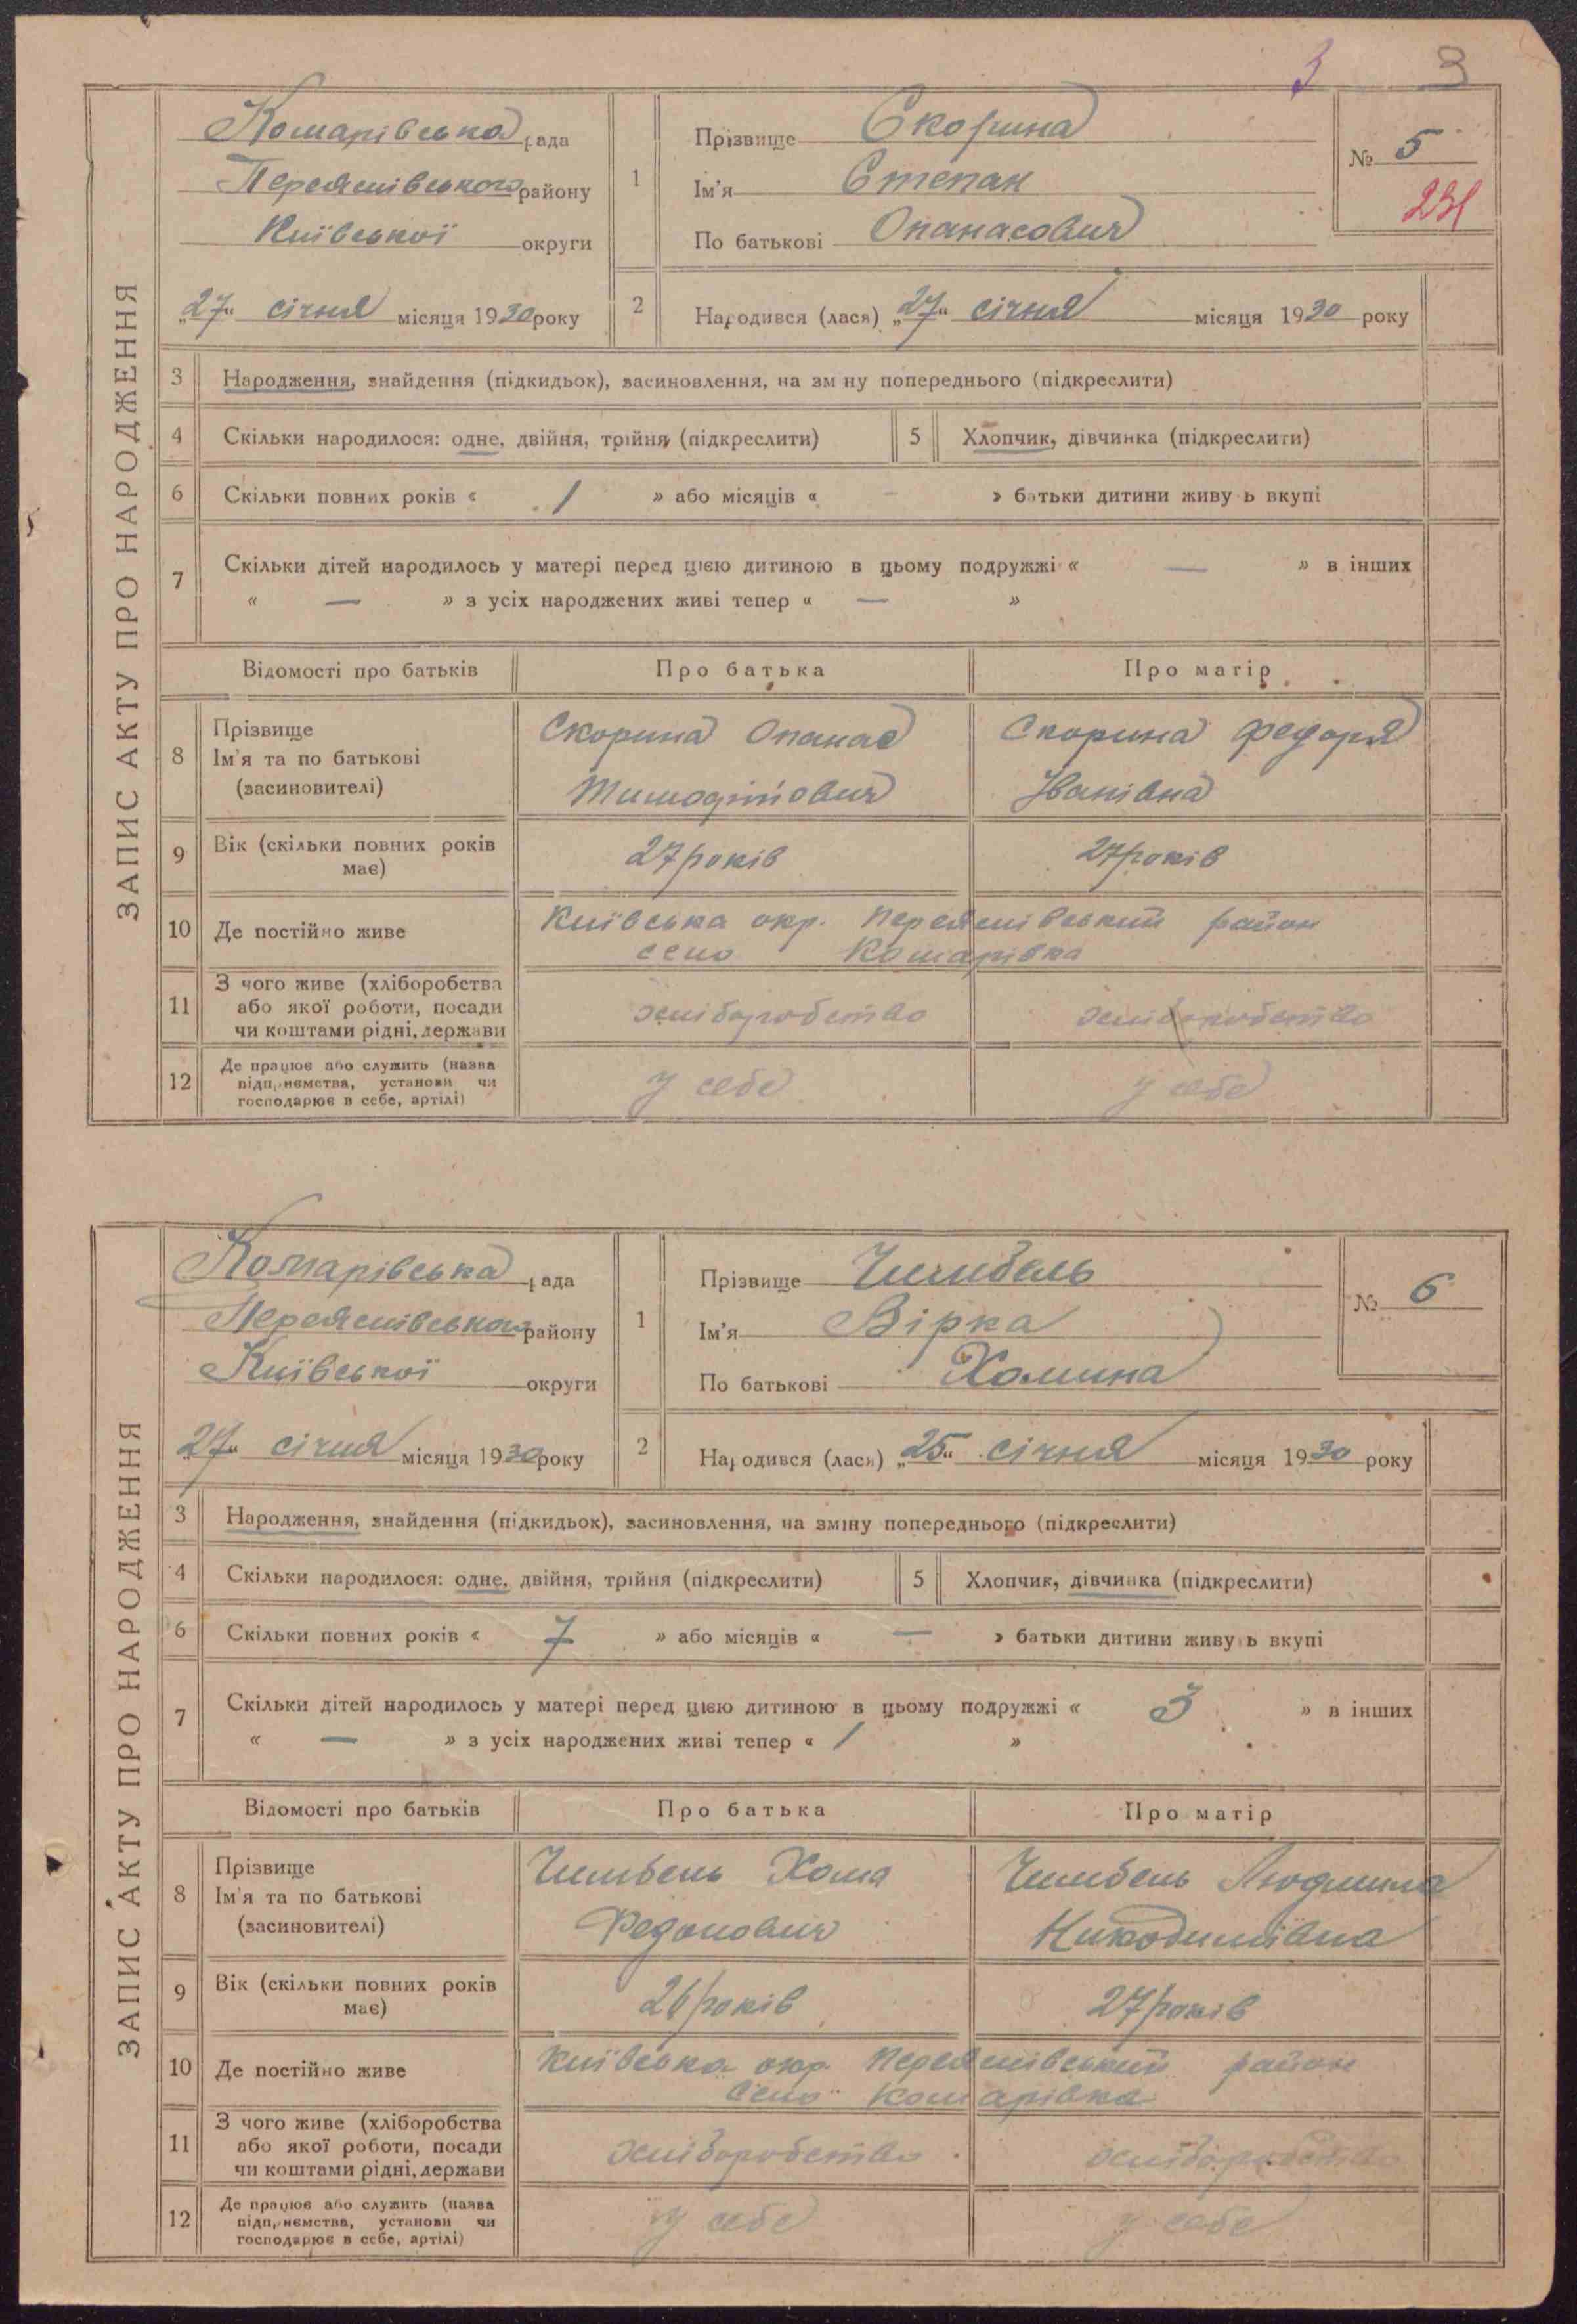 3 3
ЗАПИС АКТУ ПРО НАРОДЖЕННЯ
Комарівська рада
Переяслівського району
Київської округи
„27“ січня місяця 1930 року
1 Прізвище Скорина
Ім'я Степан
По батькові Опанасович
№ 5
231
2 Народився (лася) „27“ січня місяця 1930 року
3 Народження, знайдення (підкидьок), засиновлення, на зміну попереднього (підкреслити)
4 Скільки народилося: одне, двійня, трійня (підкреслити) 5 Хлопчик, дівчинка (підкреслити)
6 Скільки повних років « 1 » або місяців « - » батьки дитини живуть вкупі
7 Скільки дітей народилось у матері перед цією дитиною в цьому подружжі « — » в інших
« — » з усіх народжених живі тепер « — »
Відомості про батьків Про батька Про матір
8 Прізвище Ім'я та по батькові (засиновителі) Скорина Опанас Тимофійович Скорина Федора Іванівна
9 Вік (скільки повних років має) 27 років 27 років
10 Де постійно живе Київська окр. Переяслівський район
село Комарівка
11 З чого живе (хліборобства або якої роботи, посади чи коштами рідні, держави хліборобство хліборобство
12 Де працює або служить (назва підприємства, установи чи господарює в себе, артілі) у себе у себе
ЗАПИС АКТУ ПРО НАРОДЖЕННЯ
Комарівська рада
Переяслівського району
Київської округи
„27“ січня місяця 1930 року
1 Прізвище
Ім'я Вірка
По батькові Хомина
№ 6
2 Народився (лася) „25“ січня місяця 1930 року
3 Народження, знайдення (підкидьок), засиновлення, на зміну попереднього (підкреслити)
4 Скільки народилося: одне, двійня, трійня (підкреслити) 5 Хлопчик, дівчинка (підкреслити)
6 Скільки повних років « 7 » або місяців « — » батьки дитини живуть вкупі
7 Скільки дітей народилось у матері перед цією дитиною в цьому подружжі « 3 » в інших
« — » з усіх народжених живі тепер « 1 »
Відомості про батьків Про батька Про матір
8 Прізвище Ім'я та по батькові (засиновителі) Хома Людмила
9 Вік (скільки повних років має) 26 років 27 років
10 Де постійно живе Київська окр. Переяслівський район
село Комарівка
11 З чого живе (хліборобства або якої роботи, посади чи коштами рідні, держави хліборобство хліборобство
12 Де працює або служить (назва підприємства, установи чи господарює в себе, артілі) у себе у себе